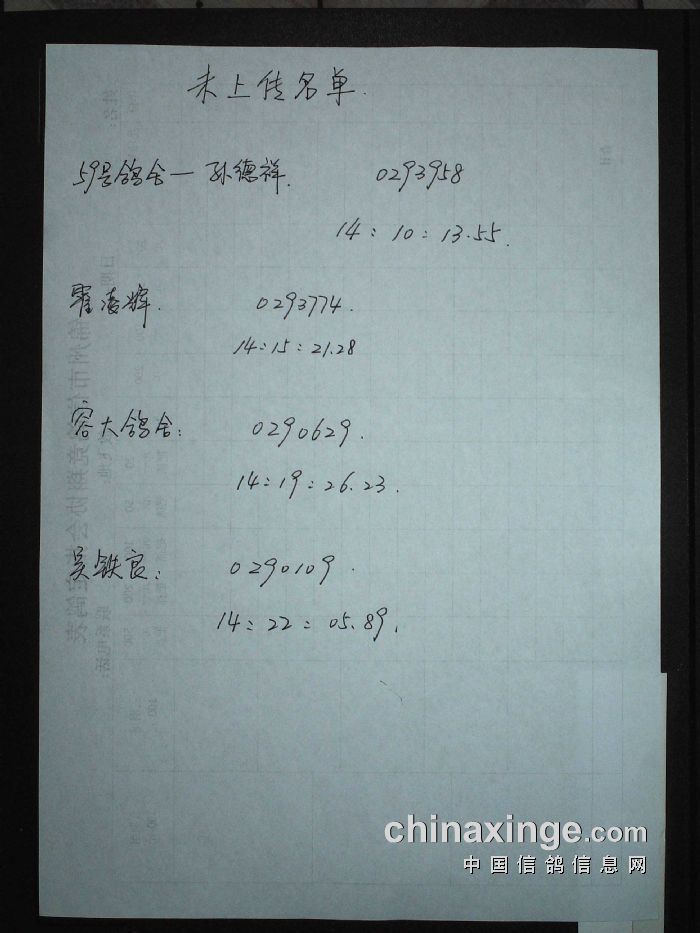 未上传名单.
59号鸽舍一孙德祥. 0293958
14:10:13.55.
翟凌辉. 0293774.
14:15:21.28
容大鸽舍: 0290629.
14:19:26.23.
吴铁良: 0290109.
14:22:05.89.
chinaxinge.com
中国信鸽信息网